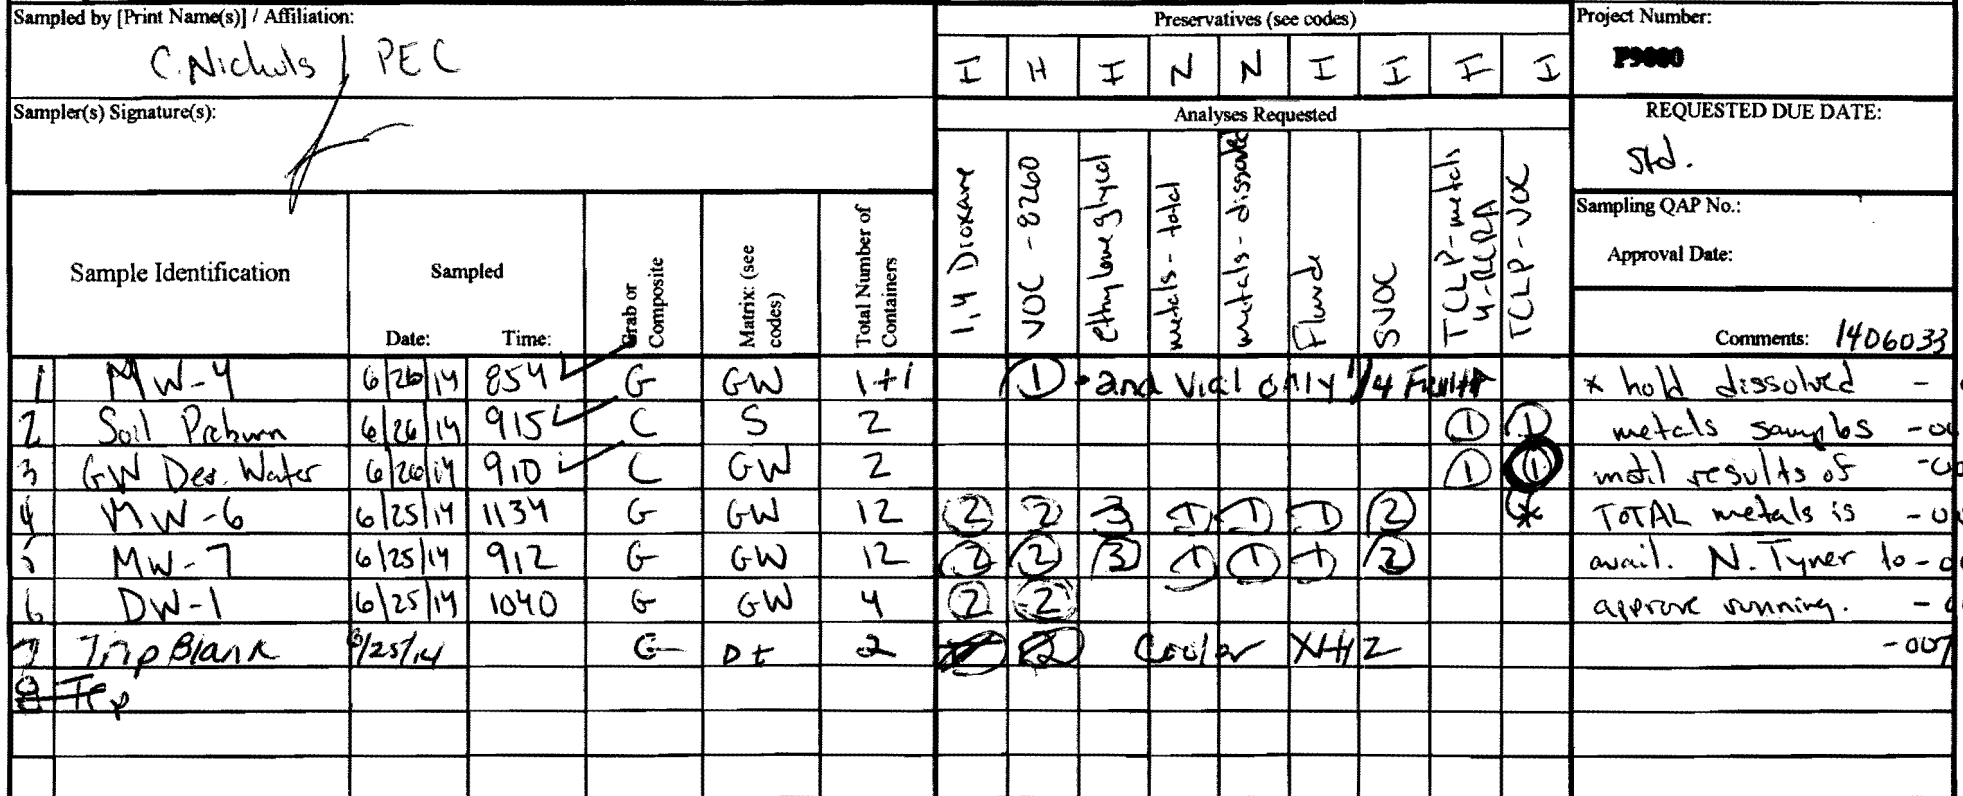 Sampled by [Print Name(s)] / Affiliation:
C. Nichols / PEC
Sampler(s) Signature(s):
Preservatives (see codes)
I H I N N I I I I
Project Number:
P9000
Analyses Requested
REQUESTED DUE DATE:
Std.
Sampling QAP No.:
Approval Date:
Comments: 1406033
Sample Identification
Sampled
Date: Time:
Grab or Composite
Matrix: (see codes)
Total Number of Containers
1,4 Dioxane
VOC - 8260
ethylene glycol
metals - total
metals - dissolved
SVOC
TCLP-metals
4-RCRA
TCLP-VOC
1 MW-4 6/26/14 854 G GW 1+1 1 and Vial only * hold dissolved -
2 Soil Preburn 6/26/14 915 C S 2 1 1 metals samples
3 GW Des. Water 6/26/14 910 C GW 2 1 1 until results of
4 MW-6 6/25/14 1134 G GW 12 2 2 3 1 1 1 2 * TOTAL metals is
5 MW-7 6/25/14 912 G GW 12 2 2 3 1 1 1 2 avail. N. Tyner to
6 DW-1 6/25/14 1040 G GW 4 2 2 approve running. -
7 Trip Blank 6/25/14 G 2 2 Cooler -007
8 Trp